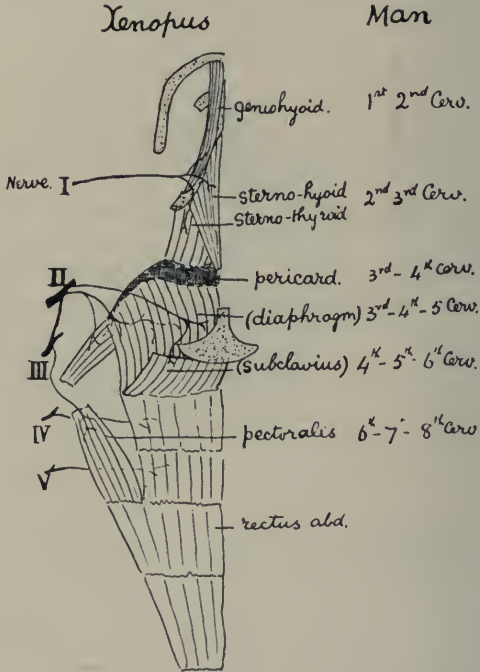 Xenopus Man
geniohyoid. 1st 2nd Cerv.
Nerve. I
sterno-hyoid 2nd 3rd Cerv.
sterno-thyroid
II
pericard. 3rd - 4th Cerv.
(diaphragm) 3rd - 4th - 5 Cerv.
III
(subclavius) 4th - 5th - 6th Cerv.
IV
pectoralis 6th - 7 - 8th Cerv
V
rectus abd.